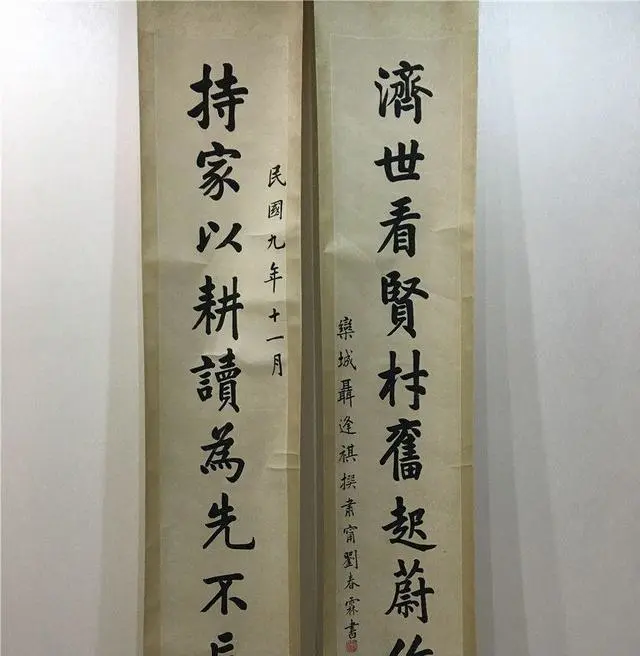 濟世看賢材奮起蔚
欒城聶逢祺撰肅甯劉春霖書
民國九年十一月
持家以耕讀為先不